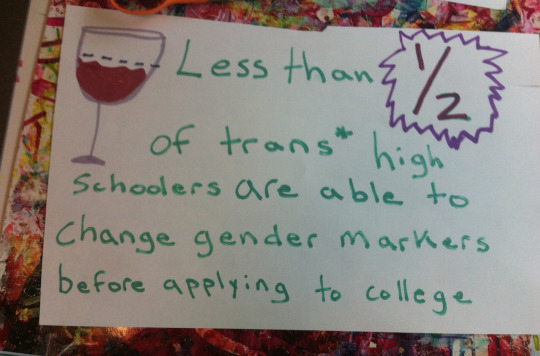 Less than 1/2
of trans* high
schoolers are able to
change gender markers
before applying to college